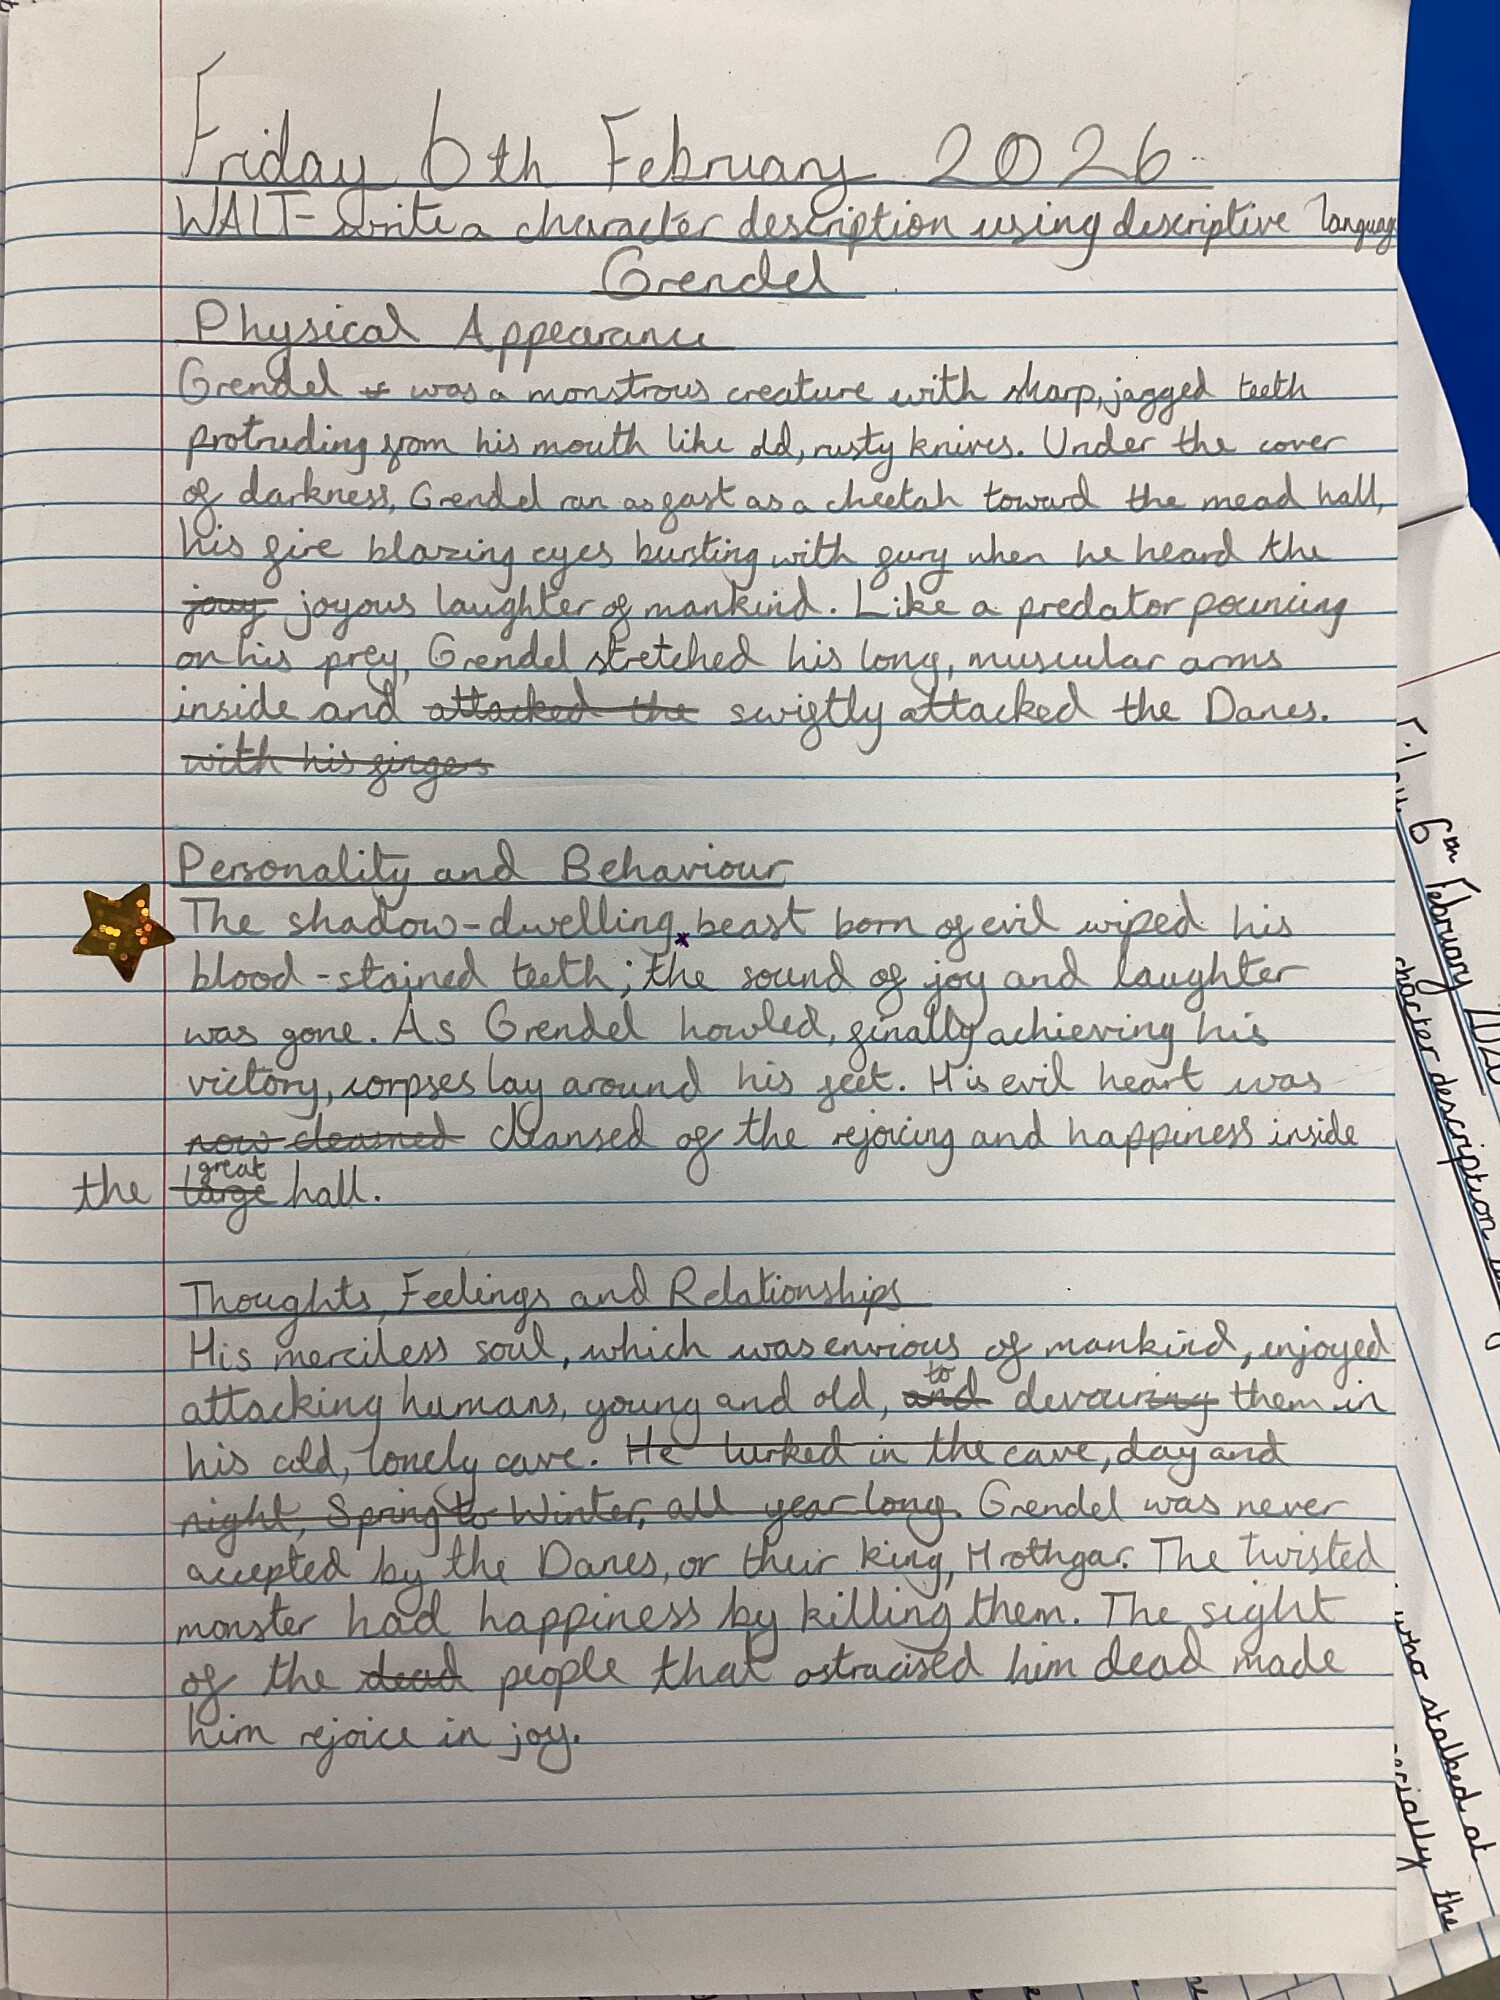 Friday 6th February 2026
WALT- write a character description using descriptive languag
Grendel
Physical Appearance
Grendel is was a monstrous creature with sharp, jagged teeth
protruding from his mouth like old, rusty knives. Under the cover
of darkness, Grendel ran as fast as a cheetah toward the mead hall,
his fire blazing eyes bursting with fury when he heard the
jouy joyous laughter of mankind. Like a predator pouncing
on his prey, Grendel stretched his long, muscular arms
inside and attacked the swiftly attacked the Danes.
with his finger
Personality and Behaviour
The shadow-dwelling beast born of evil wiped his
blood-stained teeth; the sound of joy and laughter
was gone. As Grendel howled, finally achieving his
victory, corpses lay around his feet. His evil heart was
now cleansed cleansed of the rejoicing and happiness inside
great
the large hall.
Thoughts, Feelings and Relationships
His merciless soul, which was envious of mankind, enjoyed
to
attacking humans, young and old, and devouring them in
his cold, lonely cave. He lurked in the cave, day and
night, Spring to Winter, all year long. Grendel was never
accepted by the Danes, or their king, Hrothgar. The twisted
monster had happiness by killing them. The sight
of the dead people that ostracised him dead made
him rejoice in joy.
6th February
character description
who stalked at
the